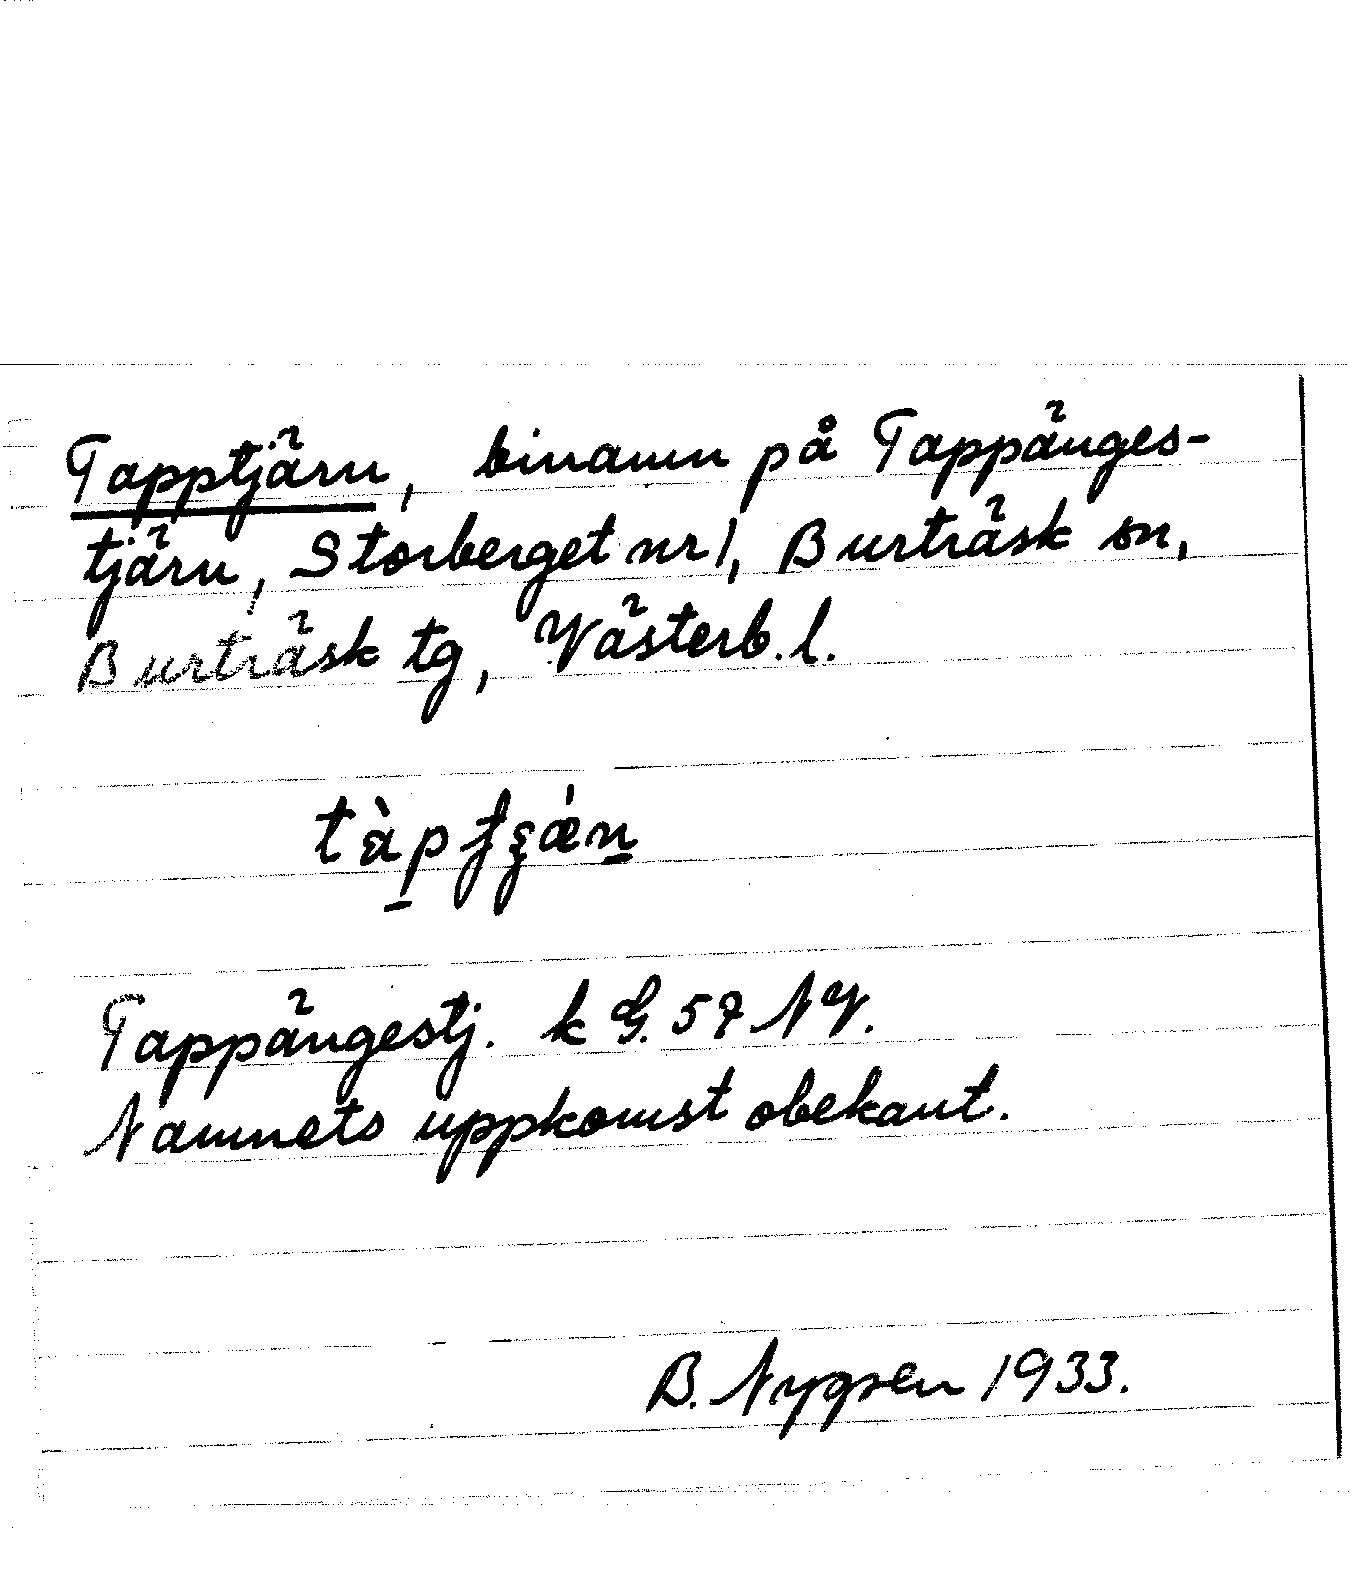 Tapptjärn, binamn på Tappänges-
tjärn, Storberget nr 1, Burträsk sn,
Burträsk tg, Västerb. l.
Tappängestj. k G. 57 NV.
Namnets uppkomst obekant.
B. Nygren 1933.